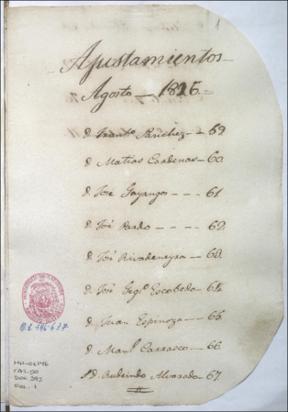 Ajustamientos
Agosto — 1826.
d. Franco. Sanchez — 59
d. Matias Cardenas — 60
d. José Gayangos — — — 61
d. José Pardo — — 62
d. José Rivadeneyra — 63
d. José Escobedo — 64
d. Juan Espinoza — — 65
d. Manl. Carrasco — 66
d. Rudecindo Alvarado — 67.